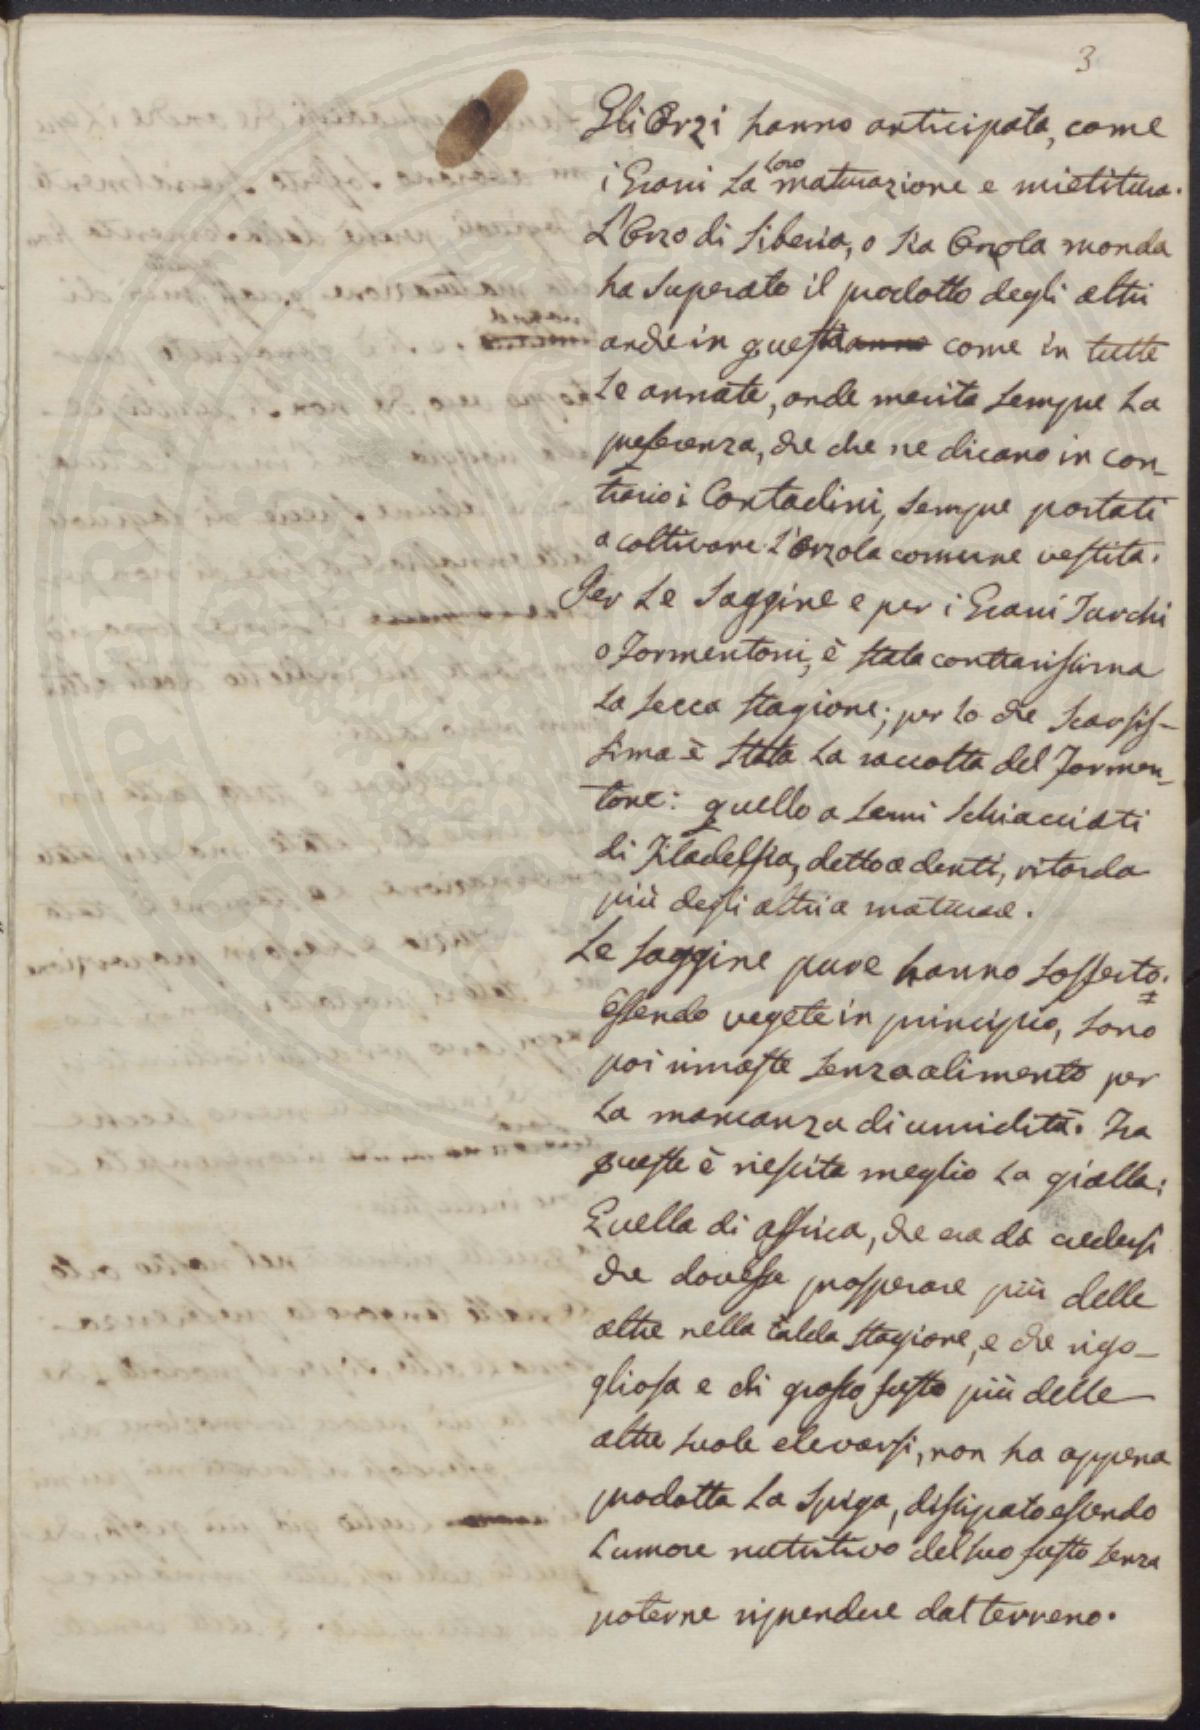 3
Gli Orzi hanno anticipata, come
i Grani la loro maturazione e mietitura.
L'Orzo di Siberia, o sia Orzola monda
ha superato il prodotto degli altri
anche in quest'anno come in tutte
le annate, onde merita sempre la
preferenza, che che ne dicano in con-
trario i Contadini, sempre portati
a coltivare l'Orzola comune vestita.
Per le Saggine e per i Grani Turchi
o Formentoni, è stata contrarissima
la secca stagione; per lo che scarsis-
sima è stata la raccolta del Formen-
tone: quello a semi schiacciati
di Filadelfia, detto a denti, ritarda
più degli altri a maturare.
Le Saggine pure hanno sofferto.
Essendo vegete in principio, sono
poi rimaste senza alimento per
la mancanza di umidità. Fra
queste è riescita meglio la gialla:
Quella di Affrica, che era da credersi
che dovesse prosperare più delle
altre nella calda stagione, e che rigo-
gliosa e di grosso fusto più delle
altre suole elevarsi, non ha appena
prodotta la spiga, dissipato essendo
l'umore nutritivo del suo fusto senza
poterne riprendere dal terreno.